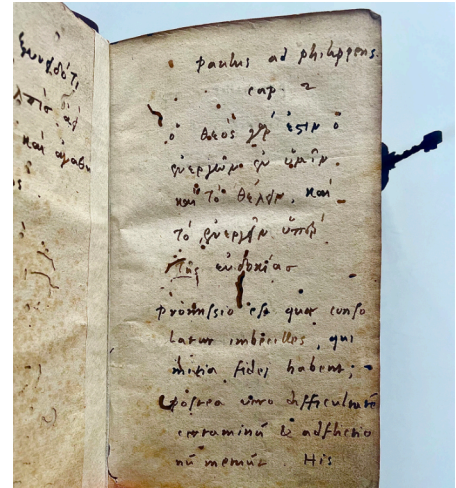 καὶ
paulus ad philippens.
cap 2
ὁ θεός γάρ ἐστιν ὁ
ἐνεργῶν ἐν ὑμῖν.
καὶ τὸ θέλειν. καὶ
τὸ ἐνεργεῖν ὑπὲρ
τῆς εὐδοκίας
promissio est quae conso
latur imbecilles, qui
initia fidei habent;
postea vero difficultatē
certaminū & adflictio
nū metuūt. His